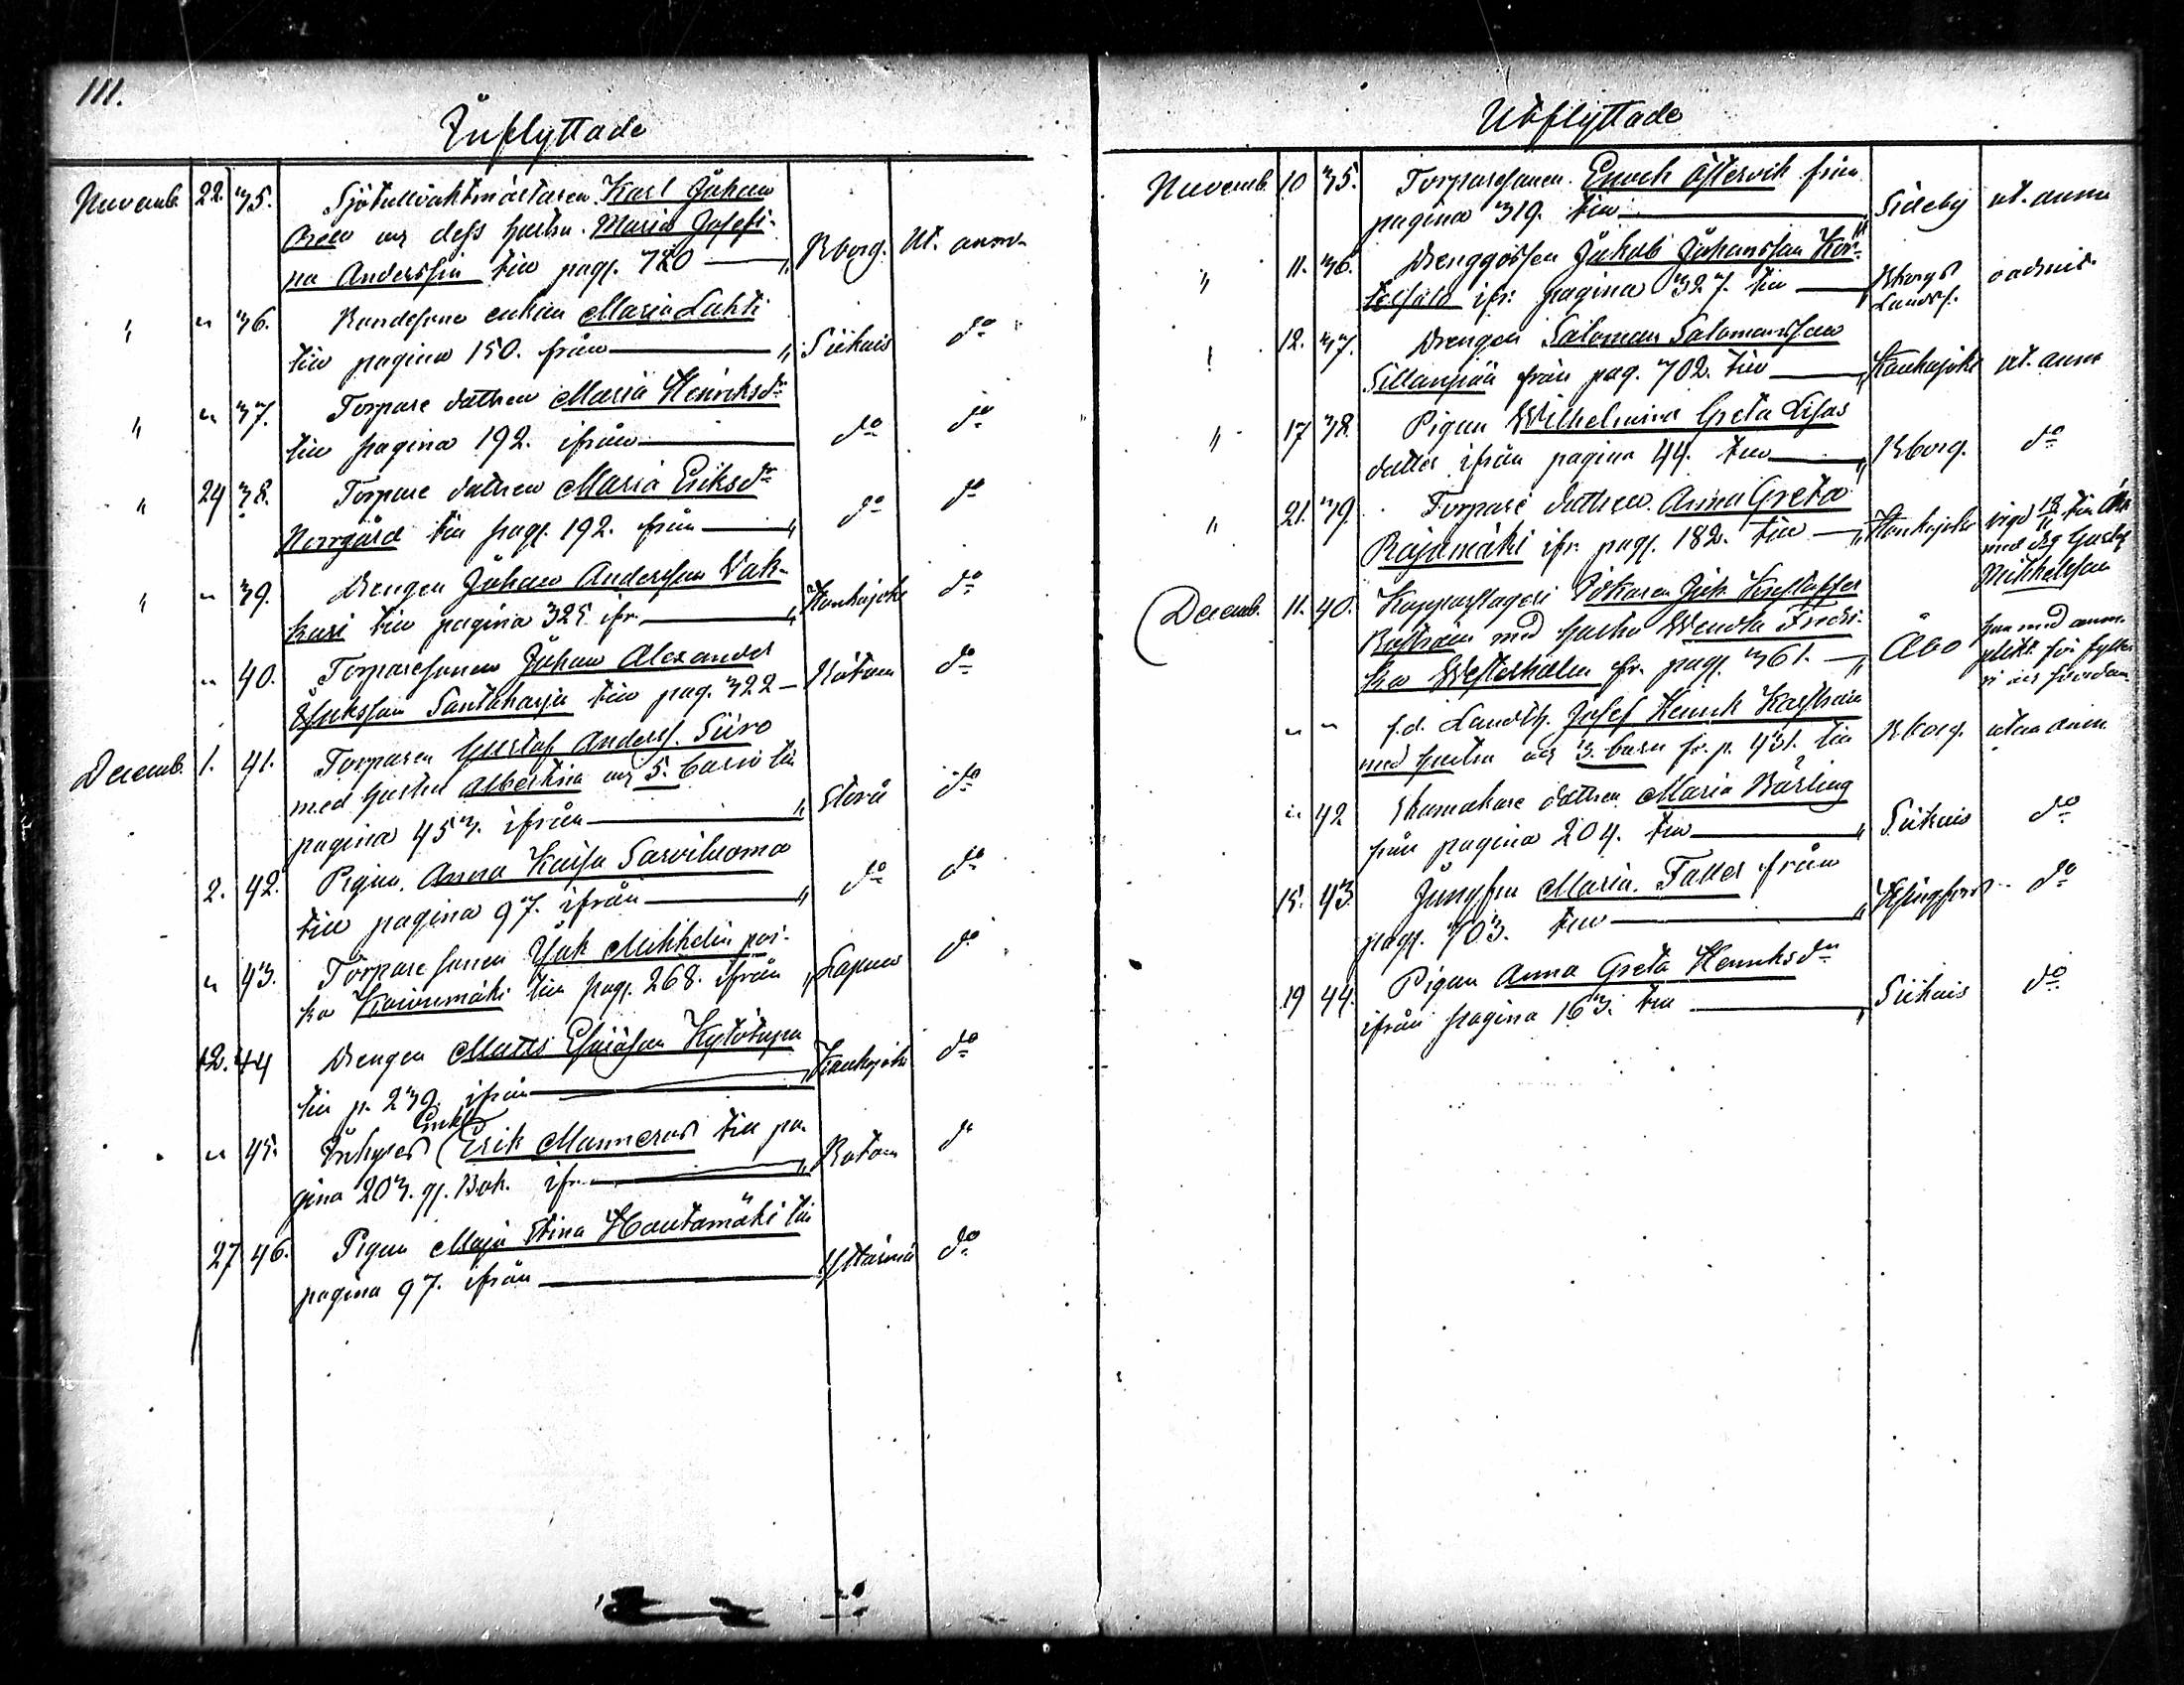 111.
Inflyttade
Novemb. 22. 35. Sjötullvaktmästaren Karl Johan
och dess hustru Maria Josefi-
na Andersson till pag. 720 — Bborg. Ut. anm.
" " 36. Bondesone enkan Maria Lahti
till pagina 150. från — " Siikais do
" " 37. Torpare dottren Maria Henriksdr
till pagina 192. ifrån — do do
" 24 38. Torpare dottren Maria Eriksdr
Norrgård till pag. 192. från — " do do
" " 39. Drengen Johan Andersson Vak-
kuri till pagina 325 ifr. — " Kauhajoki do
" 40. Torparesonen Johan Alexander
Santaharju till pag. 322 — Bötom do
Decemb. 1. 41. Torparen Gustaf Anders. Siiro
med hustru Albertina och 5. barn till
pagina 453. ifrån — " Storå do
2. 42. Pigan Anna Kaisa Sarviluoma
till pagina 97. ifrån — " do do
" 43. Torparesonen Joh Mikkelin poi-
ka Koivumäki till pag. 268. ifrån " Lapua do
12. 44 Drengen Matts Esaiasson Kytötupa
till p. 239. ifrån — " Kauhajoki do
Enkl.
" 45. Inhyses Erik Mannerus till pa
gina 203. gl. Bok. ifr. — " Botom do
27 46. Pigan Maja Stina Hautamäki till
pagina 97. ifrån — Ytterm. do
Utflyttade
Novemb. 10 35. Torparesonen Enoch Östervik från
pagina 319. till — " Sideby ut. anm
" 11. 36. Drenggossen Jakob Johansson Kor-
ifr. pagina 327. till — Bborgs
Landsf.
" 12. 37. Drengen Salomon Salomonsson
Sillanpää från pag. 702. till — " Kauhajoki ut. anm
" 17 38. Pigan Wilhelmina Greta Lisas
dotter ifrån pagina 44. till — " Bborg. do
" 21. 39. Torpare dottren Anna Greta
Rajamäki ifr. pag. 182. till — " Kauhajoki vigd 18/11
med drg Gustaf
Mikkelsson
Decemb. 11. 40. Kopparslagaren Joh.
med hustru Wendla Fredri-
ka Westerholm fr. pag. 361. — " Åbo han med anm.
" " f.d. Landth. Josef Henrik Kastrén
med hustru och 3. barn fr. p. 431. till Bborg. utan anm.
" 42 Skomakare dottren Maria Bärling
från pagina 204. till — " Siikais do
15. 43 Jungfru Maria Faller från
pag. 703. till — " Helsingfors do
19 44. Pigan Anna Greta Henriksdr
ifrån pagina 163. till — " Siikais do